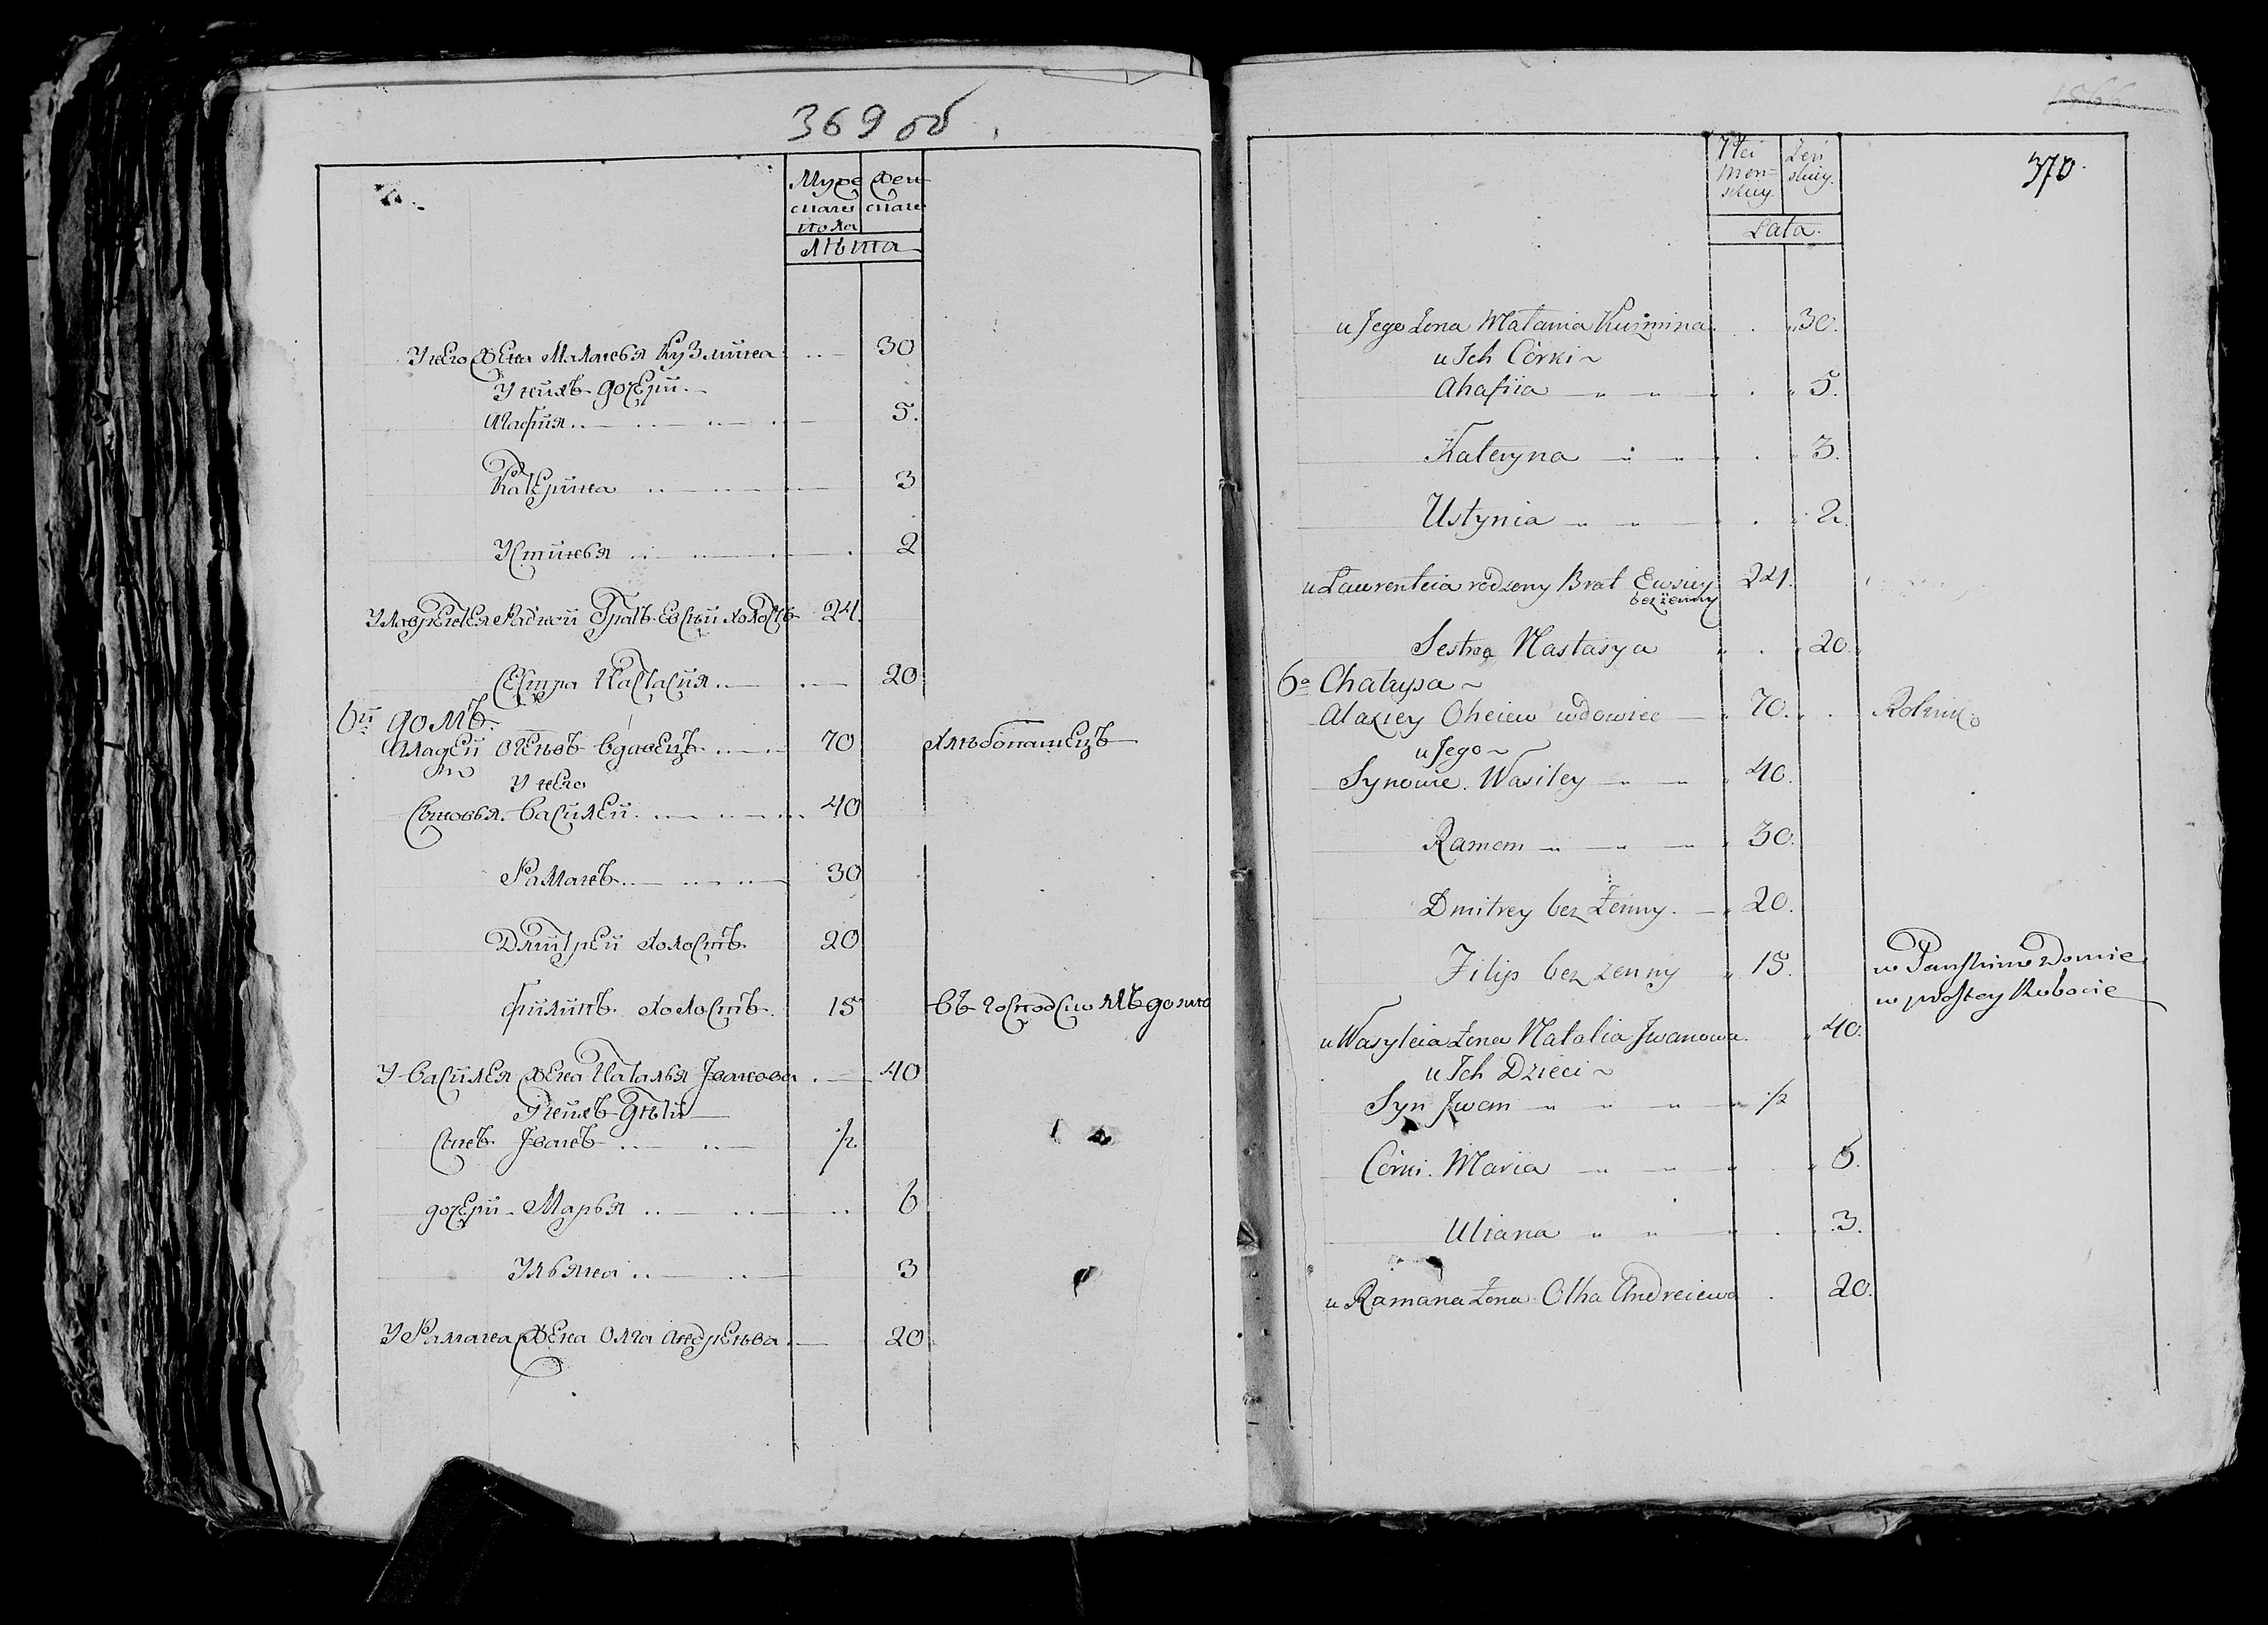 369 об
Муже Жен
скаго скаго
пола
Лѣта
У него жена Маланья Кузмина 30
У нихъ дочери
Агафия 5.
Катерина 3
Устинья 2
У Лаврентея Родной братъ Евсѣй холостъ 24.
Сестра Настасия 20
6й домъ
Алаѣей Огеевъ вдовецъ 70 хлѣбопашецъ
У него
Сыновья. Василей 40
Раманъ 30
Дмитрей холостъ 20
Филипъ холостъ 15 въ господскомъ домѣ
У Василея жена Наталья Iванова 40
У нихъ дѣти
Сынъ Iванъ ½
дочери Марья 6
Ульяна 3
У Рамана жена Олга Андреева 20
370.
Płci Żeń
męn= skiey.
skiey.
Lata.
u Jego Żona Małania Kuźmina 30.
u Ich Córki
Ahafiia 5.
Kateryna 3.
Ustynia 2.
u Laurenteia rodzony Brat Ewsiey 24.
bezżenny
Sestra Nastasya 20.
6a Chałupa
Alaxiey Oheiew wdowiec 70. Rolnik
u Jego
Synowie. Wasiley 40.
Raman 30.
Dmitrey bez Żenny. 20.
Filip bez żenny 15. w Pańskim Domie
w prostey Robocie
u Wasyleia Żona Natalia Jwanowa. 40.
u Ich Dzieci
Syn Jwan ½
Córki. Mariia 6.
Uliana 3.
u Ramana Żona Olha Andreiewa 20.